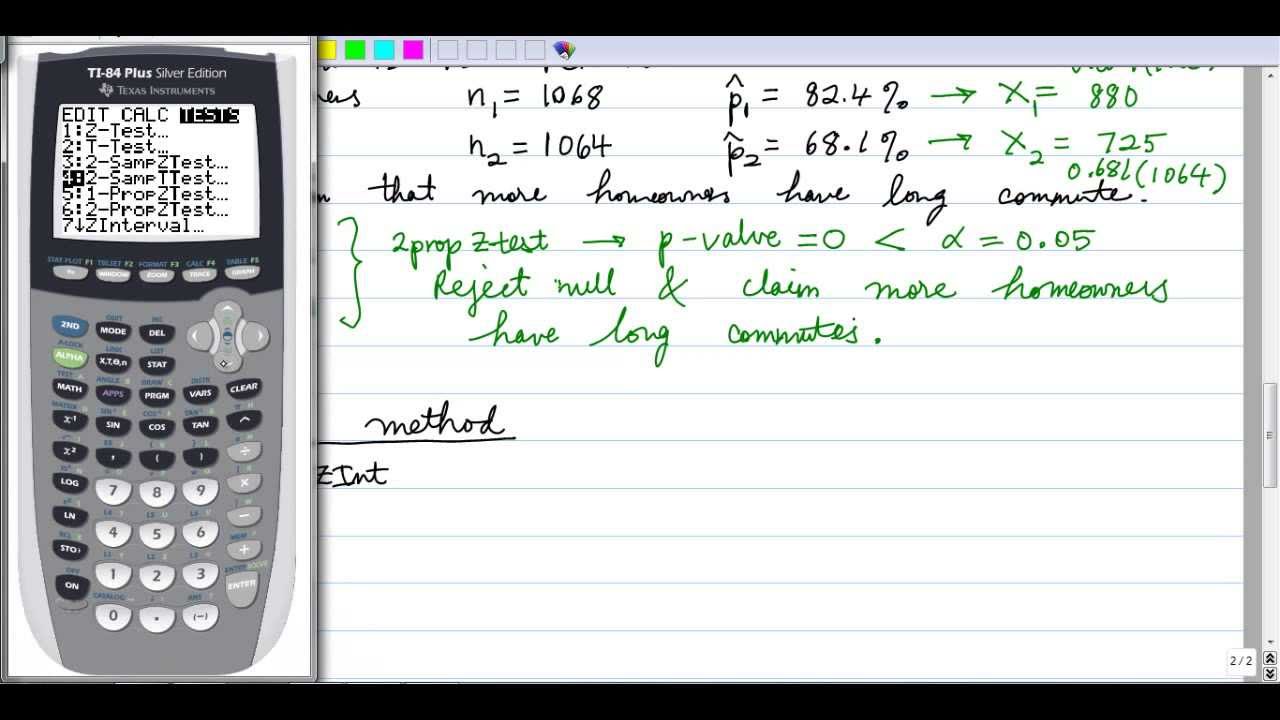 TI-84 Plus Silver Edition
TEXAS INSTRUMENTS
EDIT CALC TESTS
1:Z-Test…
2:T-Test…
3:2-SampZTest…
4:2-SampTTest…
5:1-PropZTest…
6:2-PropZTest…
7↓ZInterval…
STAT PLOT F1 TBLSET F2 FORMAT F3 CALC F4 TABLE F5
Y= WINDOW ZOOM TRACE GRAPH
2ND MODE DEL
A-LOCK LINK LIST
ALPHA X,T,Θ,n STAT
TEST A ANGLE B DRAW C DISTR
MATH APPS PRGM VARS CLEAR
MATRIX D SIN⁻¹ E COS⁻¹ F TAN⁻¹ G π H
x⁻¹ SIN COS TAN ^
x² , ( ) ÷
LOG 7 8 9 ×
LN 4 5 6 −
STO› 1 2 3 +
OFF CATALOG
ON 0 . (−) ENTER
n₁ = 1068 p̂₁ = 82.4% → X₁ = 880
n₂ = 1064 p̂₂ = 68.1% → X₂ = 725
0.681(1064)
that more homeowners have long commute.
2prop Z-test → p-value = 0 < α = 0.05
Reject null & claim more homeowners
have long commutes.
method
ZInt
2 / 2